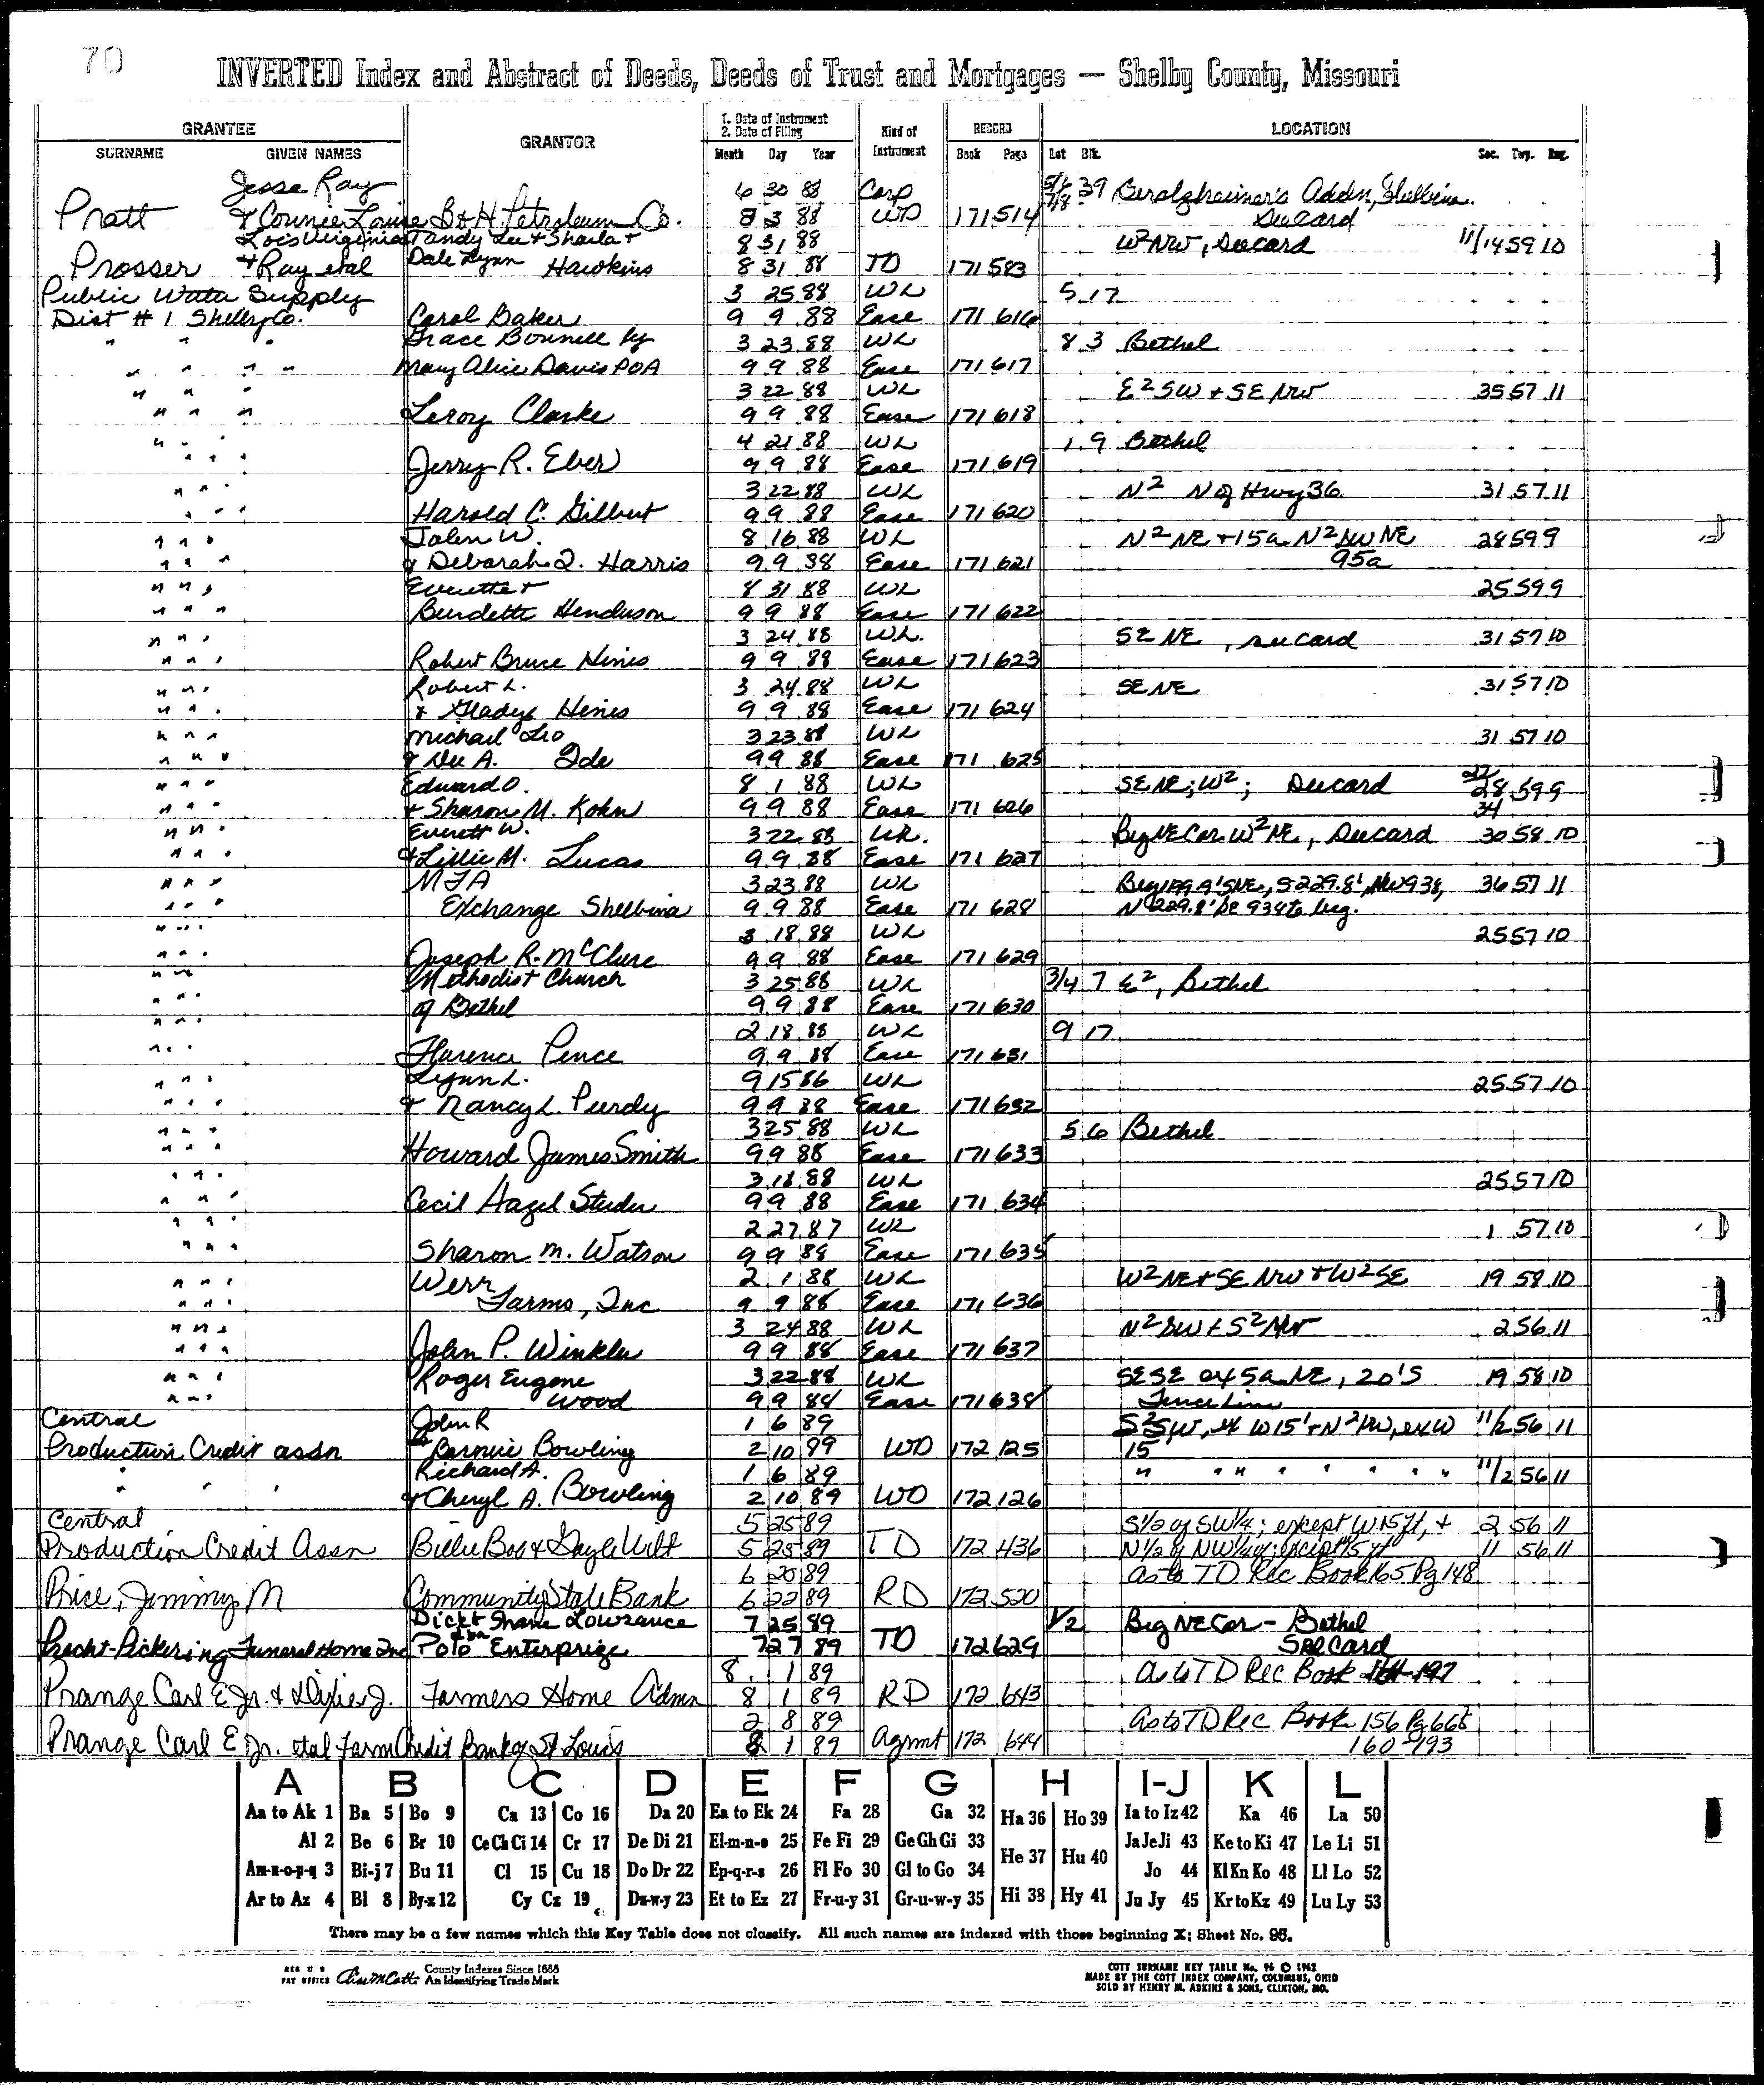 70
INVERTED Index and Abstract of Deeds, Deeds of Trust and Mortgages — Shelby County, Missouri
GRANTEE GRANTOR 1. Date of Instrument 2. Date of Filing Kind of Instrument RECORD LOCATION
SURNAME GIVEN NAMES Month Day Year Book Page Lot Blk. Sec. Twp. Rng.
Jesse Ray 6 30 88 Corp 5/6 7/8 39 Addn, Shelbina.
Pratt & Connie Louise B & H Petroleum Co. 8 3 88 WD 171 514 SeeCard
Lois Virginia Tandy Lee & Sharla & 8 31 88 W2NW, Seecard 11/14 59 10
Prosser & Ray etal Dale Lynn Hawkins 8 31 88 TD 171 583
Public Water Supply 3 25 88 WL 5 17
Dist # 1 Shelby Co. Carol Baker 9 9 88 Ease 171 616
" " " Grace Bonnell by 3 23 88 WL 8 3 Bethel
" " " " Mary Alice Davis POA 9 9 88 Ease 171 617
" " " 3 22 88 WL E2SW + SE NW 35 57 11
" " " Leroy Clarke 9 9 88 Ease 171 618
" " " 4 21 88 WL 1 9 Bethel
" " " Jerry R. Eber 9 9 88 Ease 171 619
" " " 3 22 88 WL N2 N of Hwy 36 31 57 11
" " " Harold C. Gilbert 9 9 88 Ease 171 620
" " " John W. 8 16 88 WL N2NE + 15a N2NWNE 28 59 9
" " " & Deborah J. Harris 9 9 88 Ease 171 621 95a
" " " Everette & 8 31 88 WL 25 59 9
" " " Burdette Henderson 9 9 88 Ease 171 622
" " " 3 24 88 WL. SE NE, seecard 31 57 10
" " " Robert Bruce Hines 9 9 88 Ease 171 623
" " " Robert L. 3 24 88 WL SE NE 31 57 10
" " " & Gladys Hines 9 9 88 Ease 171 624
" " " Michael Leo 3 23 88 WL 31 57 10
" " " & Dee A. Ide 9 9 88 Ease 171 625
" " " Edward O. 8 1 88 WL SE NE; W2; Seecard 27 28 59 9
" " " & Sharon M. Kohn 9 9 88 Ease 171 626 34
" " " Everett W. 3 22 88 WL. Beg NE Cor W2NE, Seecard 30 58 10
" " " & Lillie M. Lucas 9 9 88 Ease 171 627
" " " MFA 3 23 88 WL S 229.8', NW 938, 36 57 11
" " " Exchange Shelbina 9 9 88 Ease 171 628 N 229.8' SE 934 to beg.
" " " 3 18 88 WL 25 57 10
" " " Joseph R. McClure 9 9 88 Ease 171 629
" " " Methodist Church 3 25 88 WL 3/4 7 E2, Bethel
" " " of Bethel 9 9 88 Ease 171 630
" " " 2 18 88 WL 9 17
" " " Florence Pence 9 9 88 Ease 171 631
" " " Lynn L. 9 15 86 WL 25 57 10
" " " & Nancy L. Purdy 9 9 88 Ease 171 632
" " " 3 25 88 WL 5 6 Bethel
" " " Howard James Smith 9 9 88 Ease 171 633
" " " 3 18 88 WL 25 57 10
" " " Cecil Hazel Studer 9 9 88 Ease 171 634
" " " 2 27 87 WL 1 57 10
" " " Sharon M. Watson 9 9 88 Ease 171 635
" " " Werr 2 1 88 WL W2NE + SE NW + W2SE 19 58 10
" " " Farms, Inc 9 9 88 Ease 171 636
" " " 3 24 88 WL N2SW + S2NW 2 56 11
" " " John P. Winkler 9 9 88 Ease 171 637
" " " Roger Eugene 3 22 88 WL SESE ex 5a NE, 20'S 19 58 10
" " " Wood 9 9 88 Ease 171 638 Fence Line
Central John R 1 6 89 S2SW, ex W15' + N2NW, ex W 11/2 56 11
Production Credit assn & Bonnie Bowling 2 10 89 WD 172 125 15
Richard A. 1 6 89 " " " " " " " " 11/2 56 11
" " " & Cheryl A. Bowling 2 10 89 WD 172 126
Central 5 25 89 S1/2 of SW1/4; except W15ft, + 2 56 11
Production Credit Assn Billie Bob & Gayle Wilt 5 25 89 TD 172 436 N1/2 of NW1/4; except 15 ft 11 56 11
6 20 89 as to TD Rec Book 165 Pg 148
Price, Jimmy M Community State Bank 6 22 89 RD 172 520
Dick & Shana Lowrance 7 25 89 1/2 Beg NE Cor - Bethel
Precht-Pickering Funeral Home Inc dba Polo Enterprize 7 27 89 TD 172 629 See Card
8 1 89 as to TD Rec Book 164-197
Prange Carl E Jr. & Dixie J. Farmers Home Admn 8 1 89 RD 172 643
2 8 89 as to TD Rec Book 156 Pg 665
Prange Carl E Jr. etal Farm Credit Bank of St Louis 8 1 89 Agmt 172 644 160-193
A B C D E F G H I-J K L
Aa to Ak 1 Ba 5 Bo 9 Ca 13 Co 16 Da 20 Ea to Ek 24 Fa 28 Ga 32 Ha 36 Ho 39 Ia to Iz 42 Ka 46 La 50
Al 2 Be 6 Br 10 Ce Ch Ci 14 Cr 17 De Di 21 El-m-n-o 25 Fe Fi 29 Ge Gh Gi 33 He 37 Hu 40 Ja Je Ji 43 Ke to Ki 47 Le Li 51
Am-n-o-p-q 3 Bi-j 7 Bu 11 Cl 15 Cu 18 Do Dr 22 Ep-q-r-s 26 Fl Fo 30 Gl to Go 34 Jo 44 Kl Kn Ko 48 Ll Lo 52
Ar to Az 4 Bl 8 By-z 12 Cy Cz 19 Du-w-y 23 Et to Ez 27 Fr-u-y 31 Gr-u-w-y 35 Hi 38 Hy 41 Ju Jy 45 Kr to Kz 49 Lu Ly 53
There may be a few names which this Key Table does not classify. All such names are indexed with those beginning X; Sheet No. 96.
REG U S PAT OFFICE County Indexes Since 1888 An Identifying Trade Mark
COTT SURNAME KEY TABLE No. 96 © 1962
MADE BY THE COTT INDEX COMPANY, COLUMBUS, OHIO
SOLD BY HENRY M. ADKINS & SONS, CLINTON, MO.